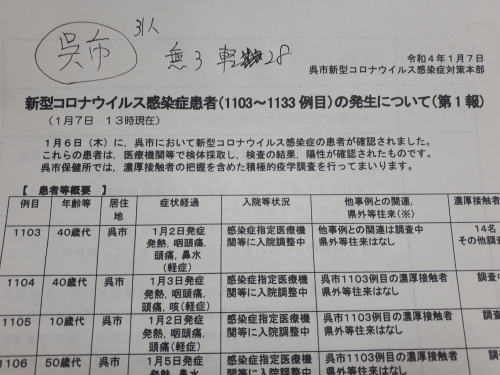 呉市 31人
無3 軽 28
令和4年1月7日
呉市新型コロナウイルス感染症対策本部
新型コロナウイルス感染症患者(1103～1133例目)の発生について(第1報)
(1月7日 13時現在)
1月6日(木)に、呉市において新型コロナウイルス感染症の患者が確認されました。
これらの患者は、医療機関等で検体採取し、検査の結果、陽性が確認されたものです。
呉市保健所では、濃厚接触者の把握を含めた積極的疫学調査を行ってまいります。
【 患者等概要 】
例目 年齢等 居住地 症状経過 入院等状況 他事例との関連、県外等往来(※) 濃厚接触者
1103 40歳代 呉市 1月2日発症 感染症指定医療機 他事例との関連は調査中 14名
発熱, 咽頭痛, 関等に入院調整中 県外等往来はなし その他調査
頭痛, 鼻水
(軽症)
1104 40歳代 呉市 1月3日発症 感染症指定医療機 呉市1103例目の濃厚接触者 調査中
発熱, 咽頭痛, 関等に入院調整中 県外等往来はなし
頭痛, 咳(軽症)
1105 10歳代 呉市 1月2日発症 感染症指定医療機 呉市1103例目の濃厚接触者 調査
発熱, 咽頭痛, 関等に入院調整中 県外等往来はなし
頭痛(軽症)
1106 50歳代 呉市 1月5日発症 感染症指定医療機 呉市1103例目の濃厚接触者